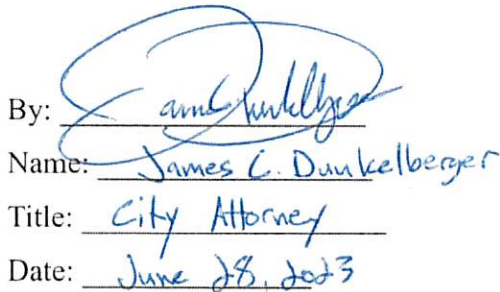 By:
Name: James C. Dunkelberger
Title: City Attorney
Date: June 28, 2023